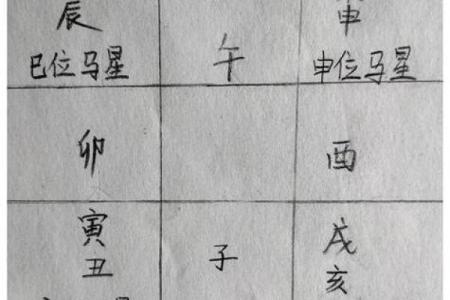 辰
巳位马星
午
申
申位马星
卯
酉
寅
丑
子
戌
亥